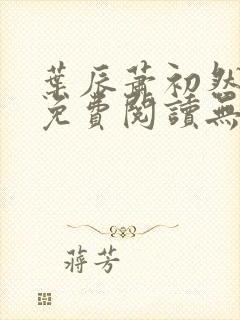 葉辰蕭初然
免費閱讀無
蔣芳